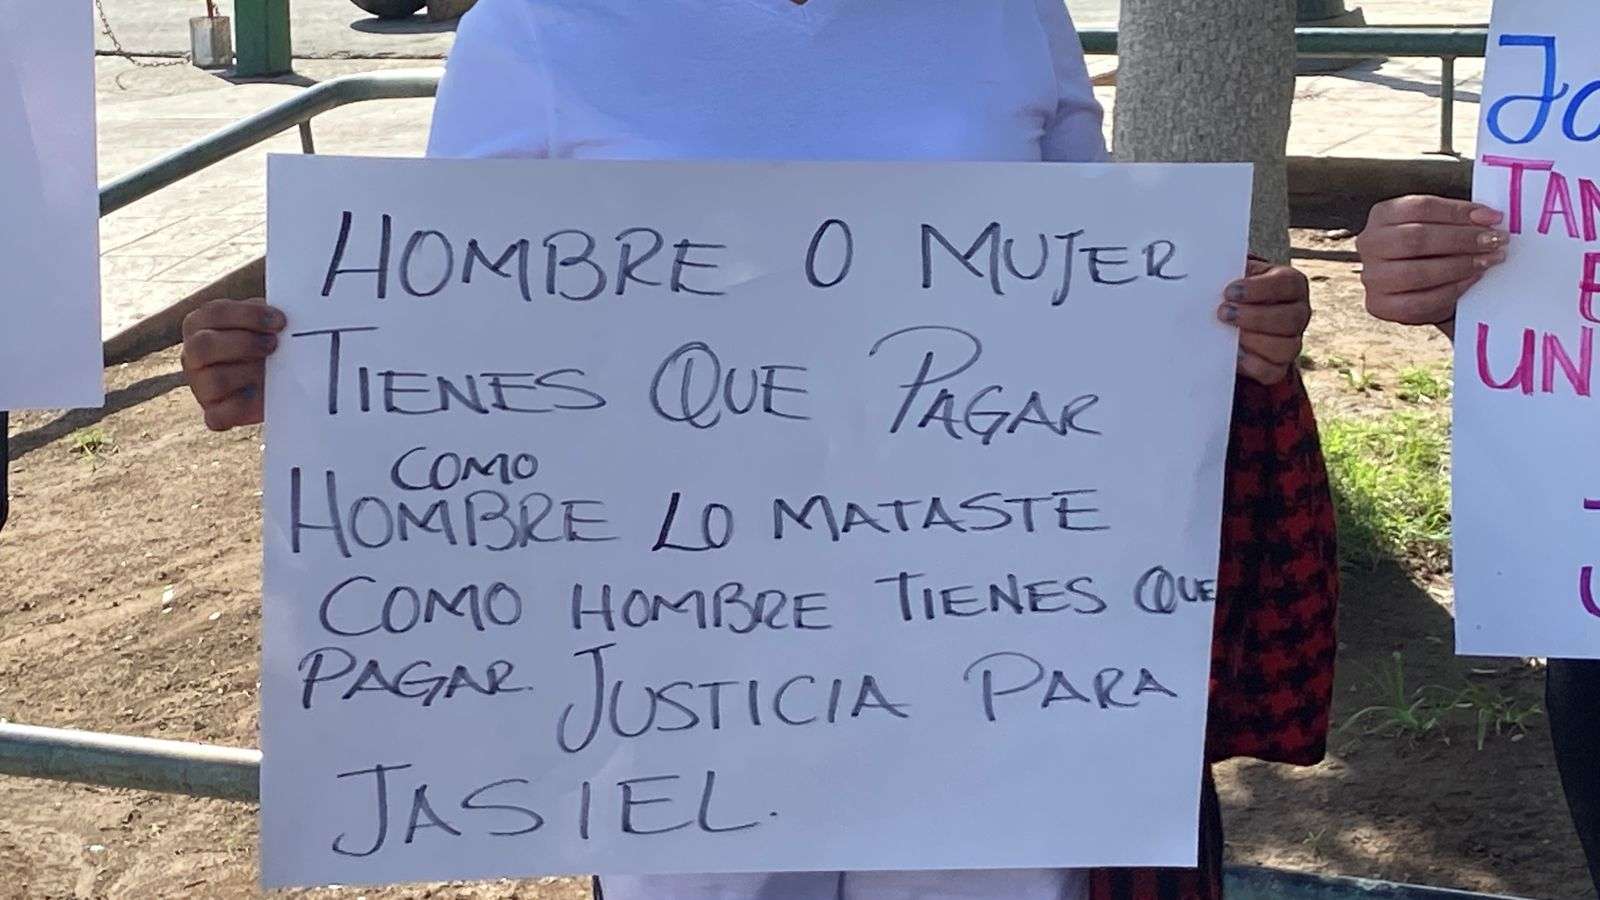 HOMBRE O MUJER
TIENES QUE PAGAR
COMO
HOMBRE LO MATASTE
COMO HOMBRE TIENES QUE
PAGAR. JUSTICIA PARA
JASIEL.
UN